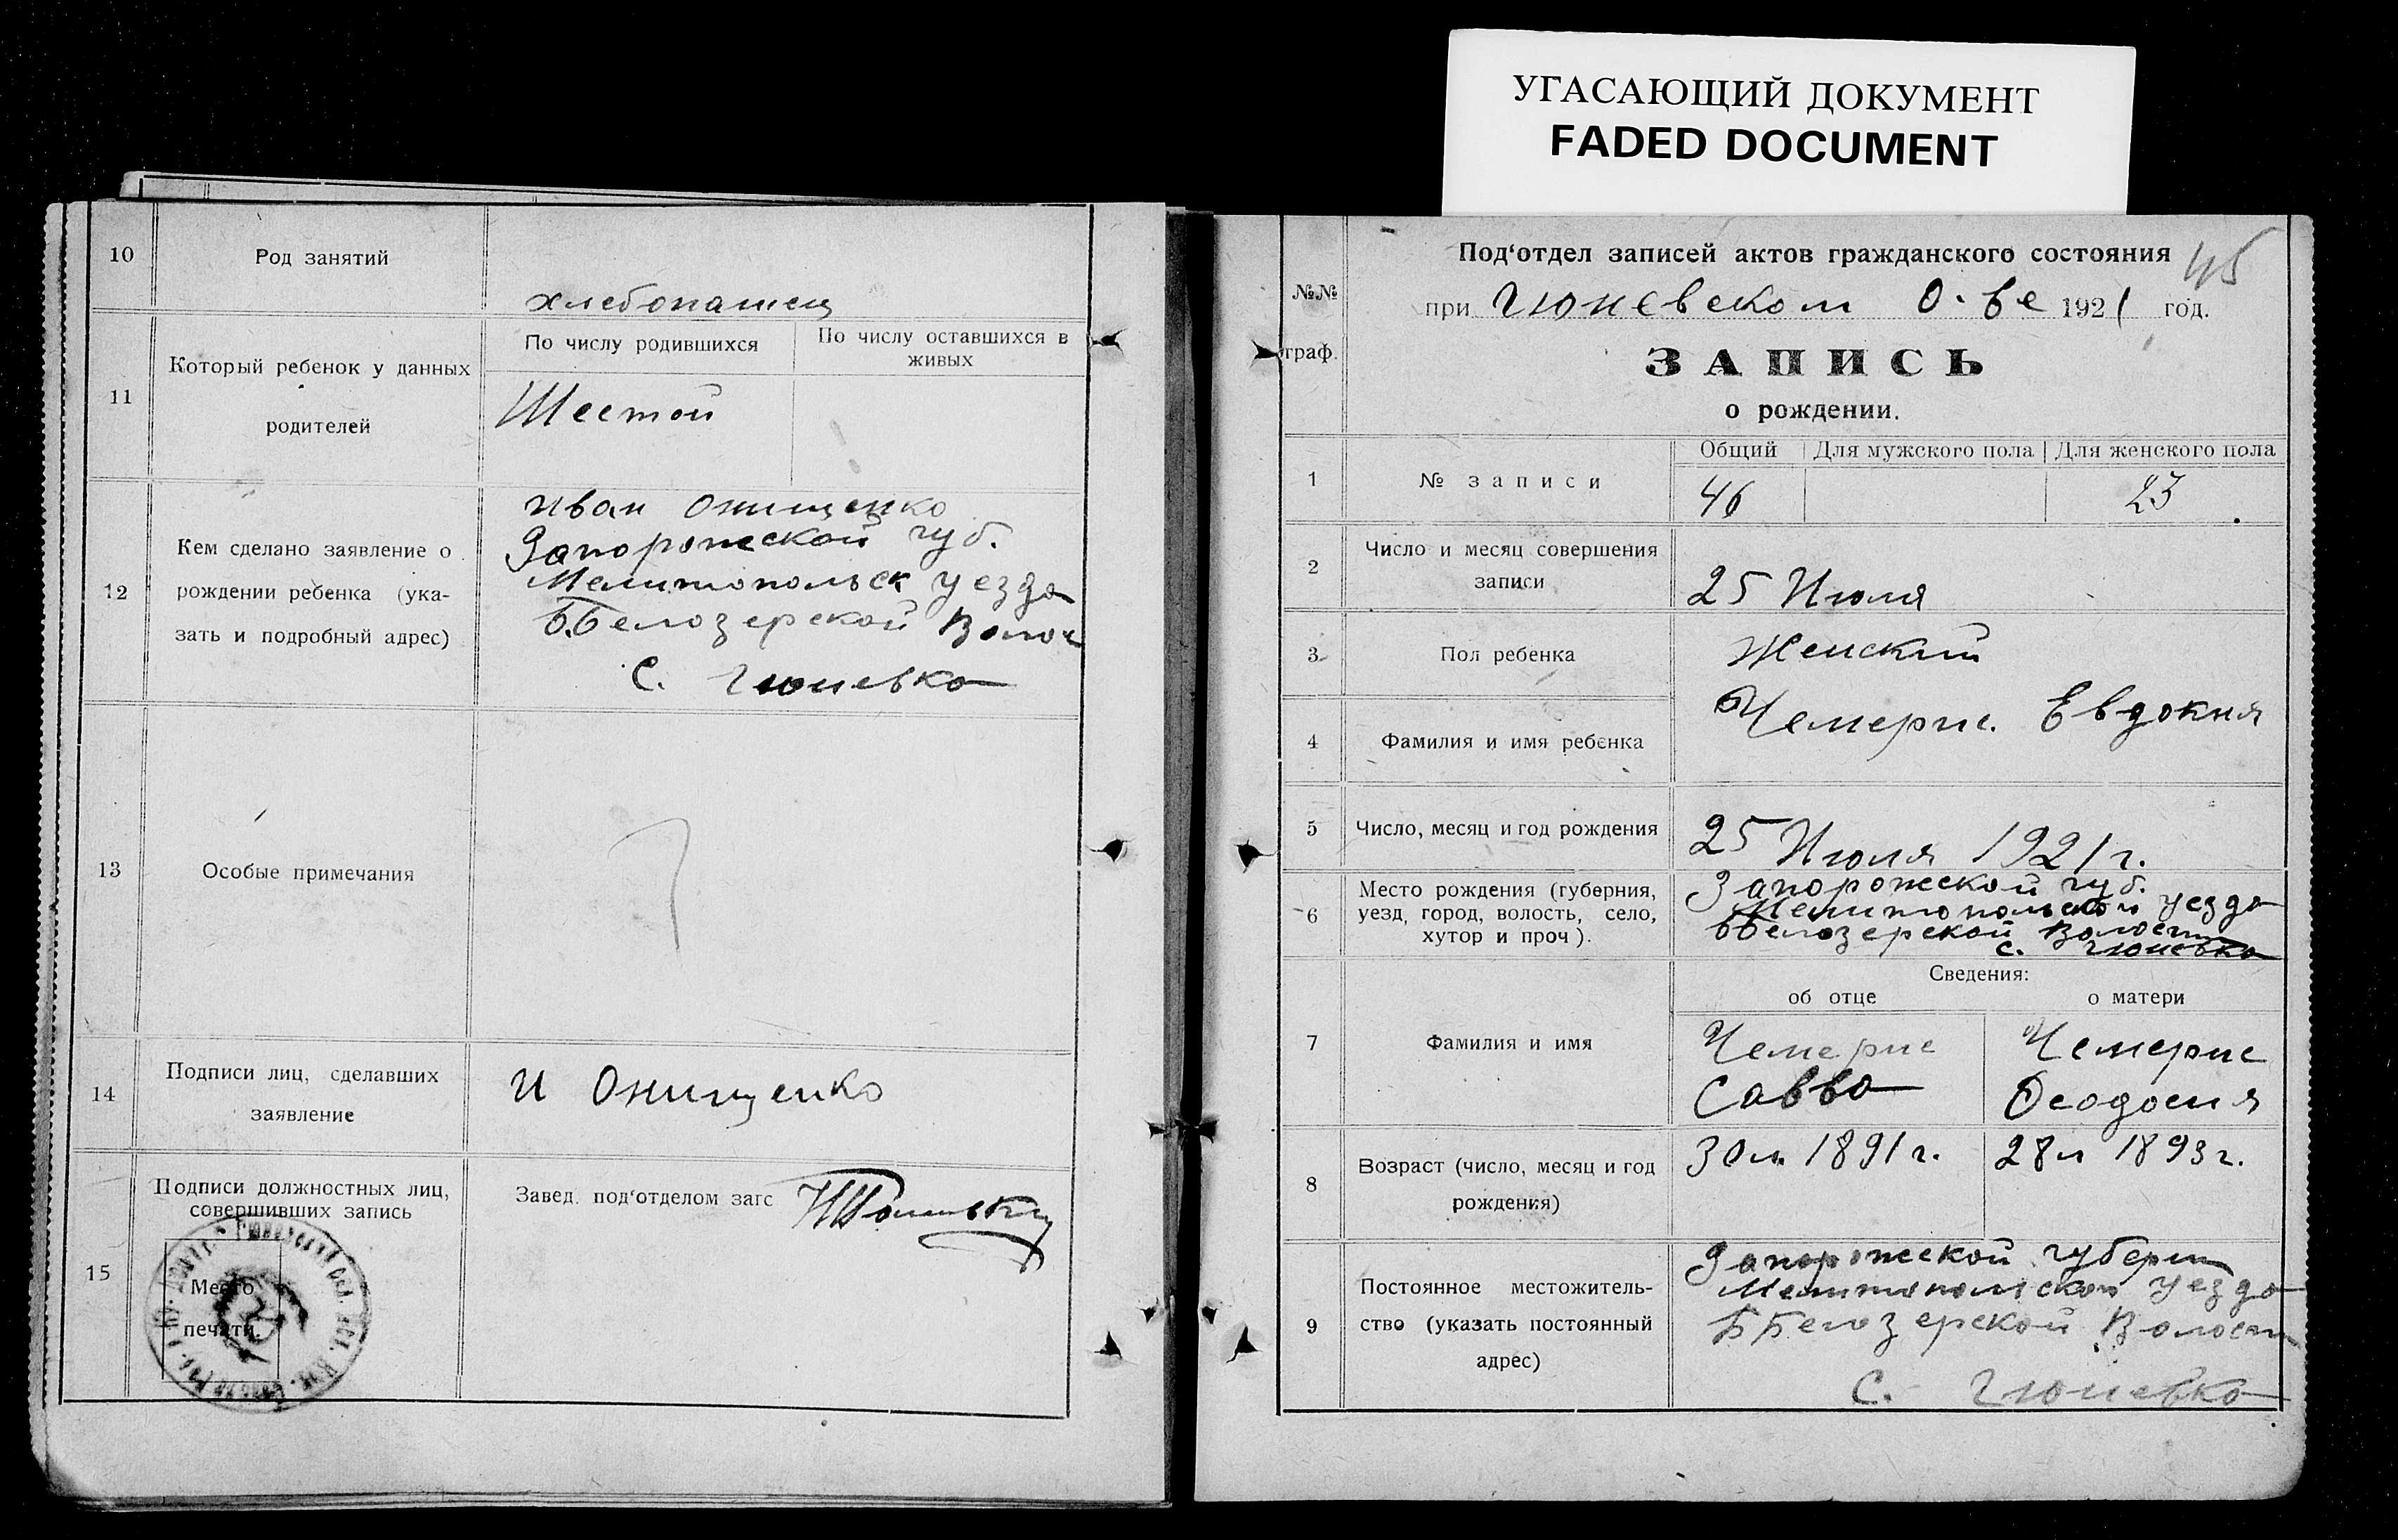 УГАСАЮЩИЙ ДОКУМЕНТ
FADED DOCUMENT
10
Род занятий
хлебопашец
11
Который ребенок у данных
родителей
По числу родившихся
По числу оставшихся в
живых
Шестой
12
Кем сделано заявление о
рождении ребенка (ука-
зать и подробный адрес)
Иван Онищенко
Запорожской губ.
Мелитопольск уезда
Б.Белозерской Волос
С. Гюневка
13
Особые примечания
14
Подписи лиц, сделавших
заявление
И Онищенко
15
Подписи должностных лиц,
совершивших запись
Место
печати.
Завед. под'отделом загс
45
№№
граф.
Под'отдел записей актов гражданского состояния
при Гюневском О-ве 1921 год.
ЗАПИСЬ
о рождении.
1
№ записи
Общий
Для мужского пола
Для женского пола
46
23
2
Число и месяц совершения
записи
25 Июля
3
Пол ребенка
Женский
4
Фамилия и имя ребенка
Чемерис. Евдокия
5
Число, месяц и год рождения
25 Июля 1921 г.
6
Место рождения (губерния,
уезд, город, волость, село,
хутор и проч).
Запорожской губ.
Мелитопольской уезда
ББелозерской Волости
с. Гюневка
7
Фамилия и имя
Сведения:
об отце
о матери
Чемерис
Савва
Чемерис
Феодосия
8
Возраст (число, месяц и год
рождения)
30 л. 1891 г.
28 л 1893 г.
9
Постоянное местожитель-
ство (указать постоянный
адрес)
Запорожской губерни
Мелитопольской уезда
ББелозерской Волости
С. Гюневка